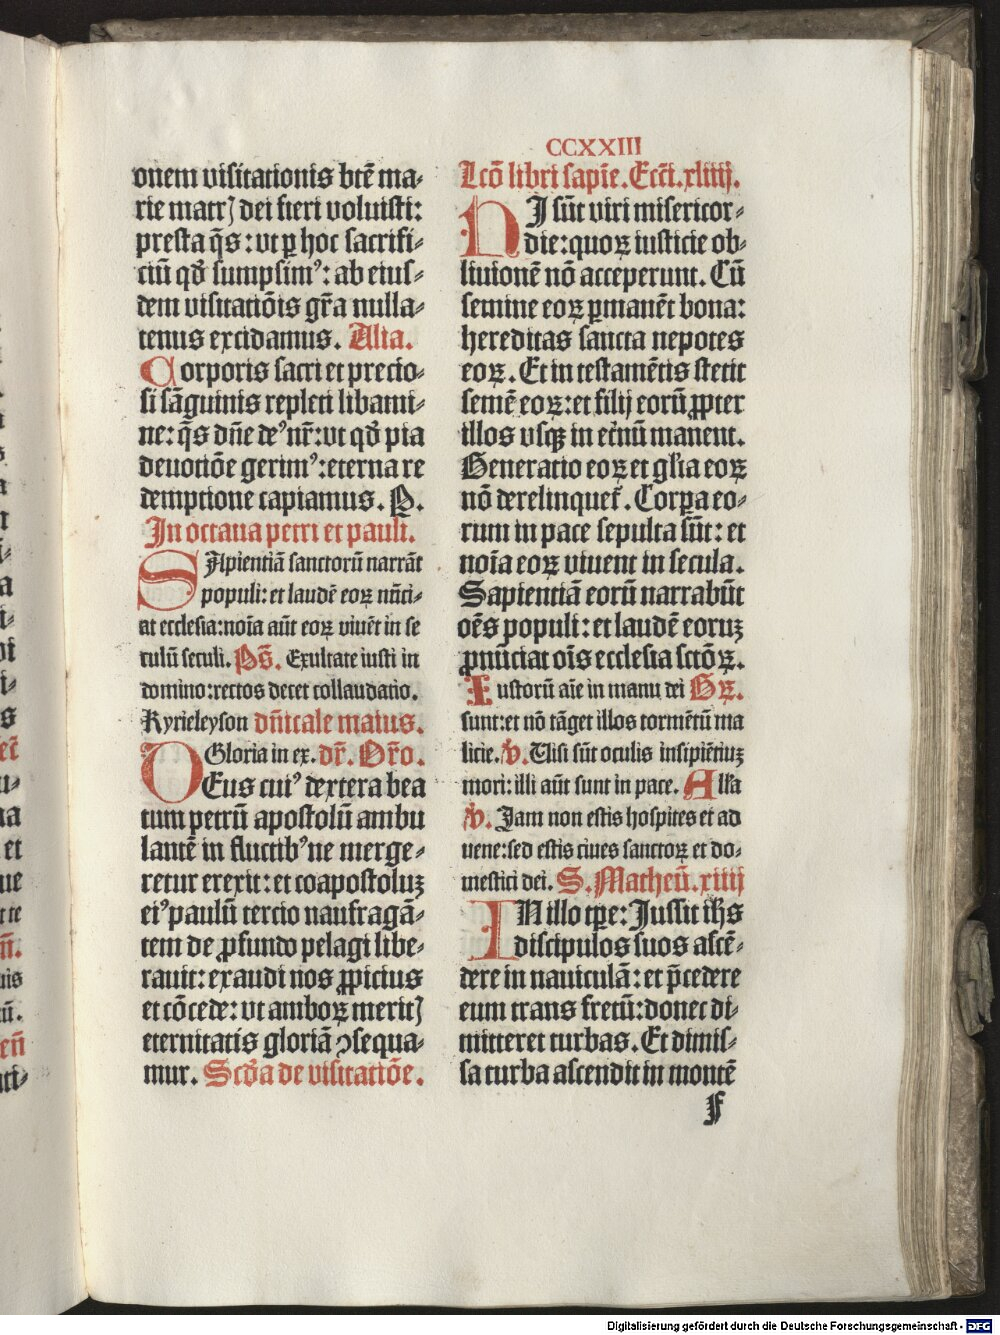 CCXXIII
onem visitationis btē ma⸗
rie matrꝭ dei fieri voluisti:
presta q̄s: vt ꝑ hoc sacrifi⸗
ciū qḋ sumpsimꝰ: ab eius⸗
dem visitatiōis gr̄a nulla⸗
tenus excidamus. Alia.
Corporis sacri et precio⸗
si sāguinis repleti libami⸗
ne: q̄s dn̄e deꝰ nr̄: vt qḋ pia
deuotiōe gerimꝰ: eterna re
demptione capiamus. P.
In octaua petri et pauli.
SApientiā sanctorū narrāt
populi: et laudē eoꝝ nūci⸗
at ecclesia: noīa aūt eoꝝ viuēt in se
culū seculi. Ps̄. Exultate iusti in
domino: rectos decet collaudatio.
Kyrieleyson dn̄icale maius.
Gloria in ex. dr̄. Or̄o.
DEus cuiꝰ dextera bea
tum petrū apostolū ambu
lantē in fluctibꝰ ne merge⸗
retur erexit: et coapostoluꝫ
eiꝰ paulū tercio naufragā⸗
tem de ꝓfundo pelagi libe⸗
rauit: exaudi nos ꝓpicius
et cōcede: vt amboꝝ meritꝭ
eternitatis gloriā ꝯsequa⸗
mur. Scḋa de visitatiōe.
Lcō libri sapīe. Ecci. xliiij.
DIJ sūt viri misericor⸗
die: quoꝝ iusticie ob⸗
liuionē nō acceperunt. Cū
semine eoꝝ ꝑmanēt bona:
hereditas sancta nepotes
eoꝝ. Et in testamētis stetit
semē eoꝝ: et filij eorū ꝓpter
illos vsqꝫ in et̄nū manent.
Generatio eoꝝ et gl̄ia eoꝝ
nō derelinquet̄. Corꝑa eo⸗
rum in pace sepulta sūt: et
noīa eoꝝ viuent in secula.
Sapientiā eorū narrabūt
oēs populi: et laudē eoruꝫ
ꝓnūciat oīs ecclesia sctōꝝ.
Iustorū aīe in manu dei Gꝝ.
sunt: et nō tāget illos tormētū ma
licie. v̇. Visi sūt oculis insipiētiuꝫ
mori: illi aūt sunt in pace. All'a
v̇. Jam non estis hospites et ad
uene: sed estis ciues sanctoꝝ et do⸗
mestici dei. S. Matheū. xiiij
IN illo tꝑe: Jussit ih̄s
discipulos suos ascē⸗
dere in nauiculā: et p̄cedere
eum trans fretū: donec di⸗
mitteret turbas. Et dimis⸗
sa turba ascendit in montē
F
Digitalisierung gefördert durch die Deutsche Forschungsgemeinschaft - DFG